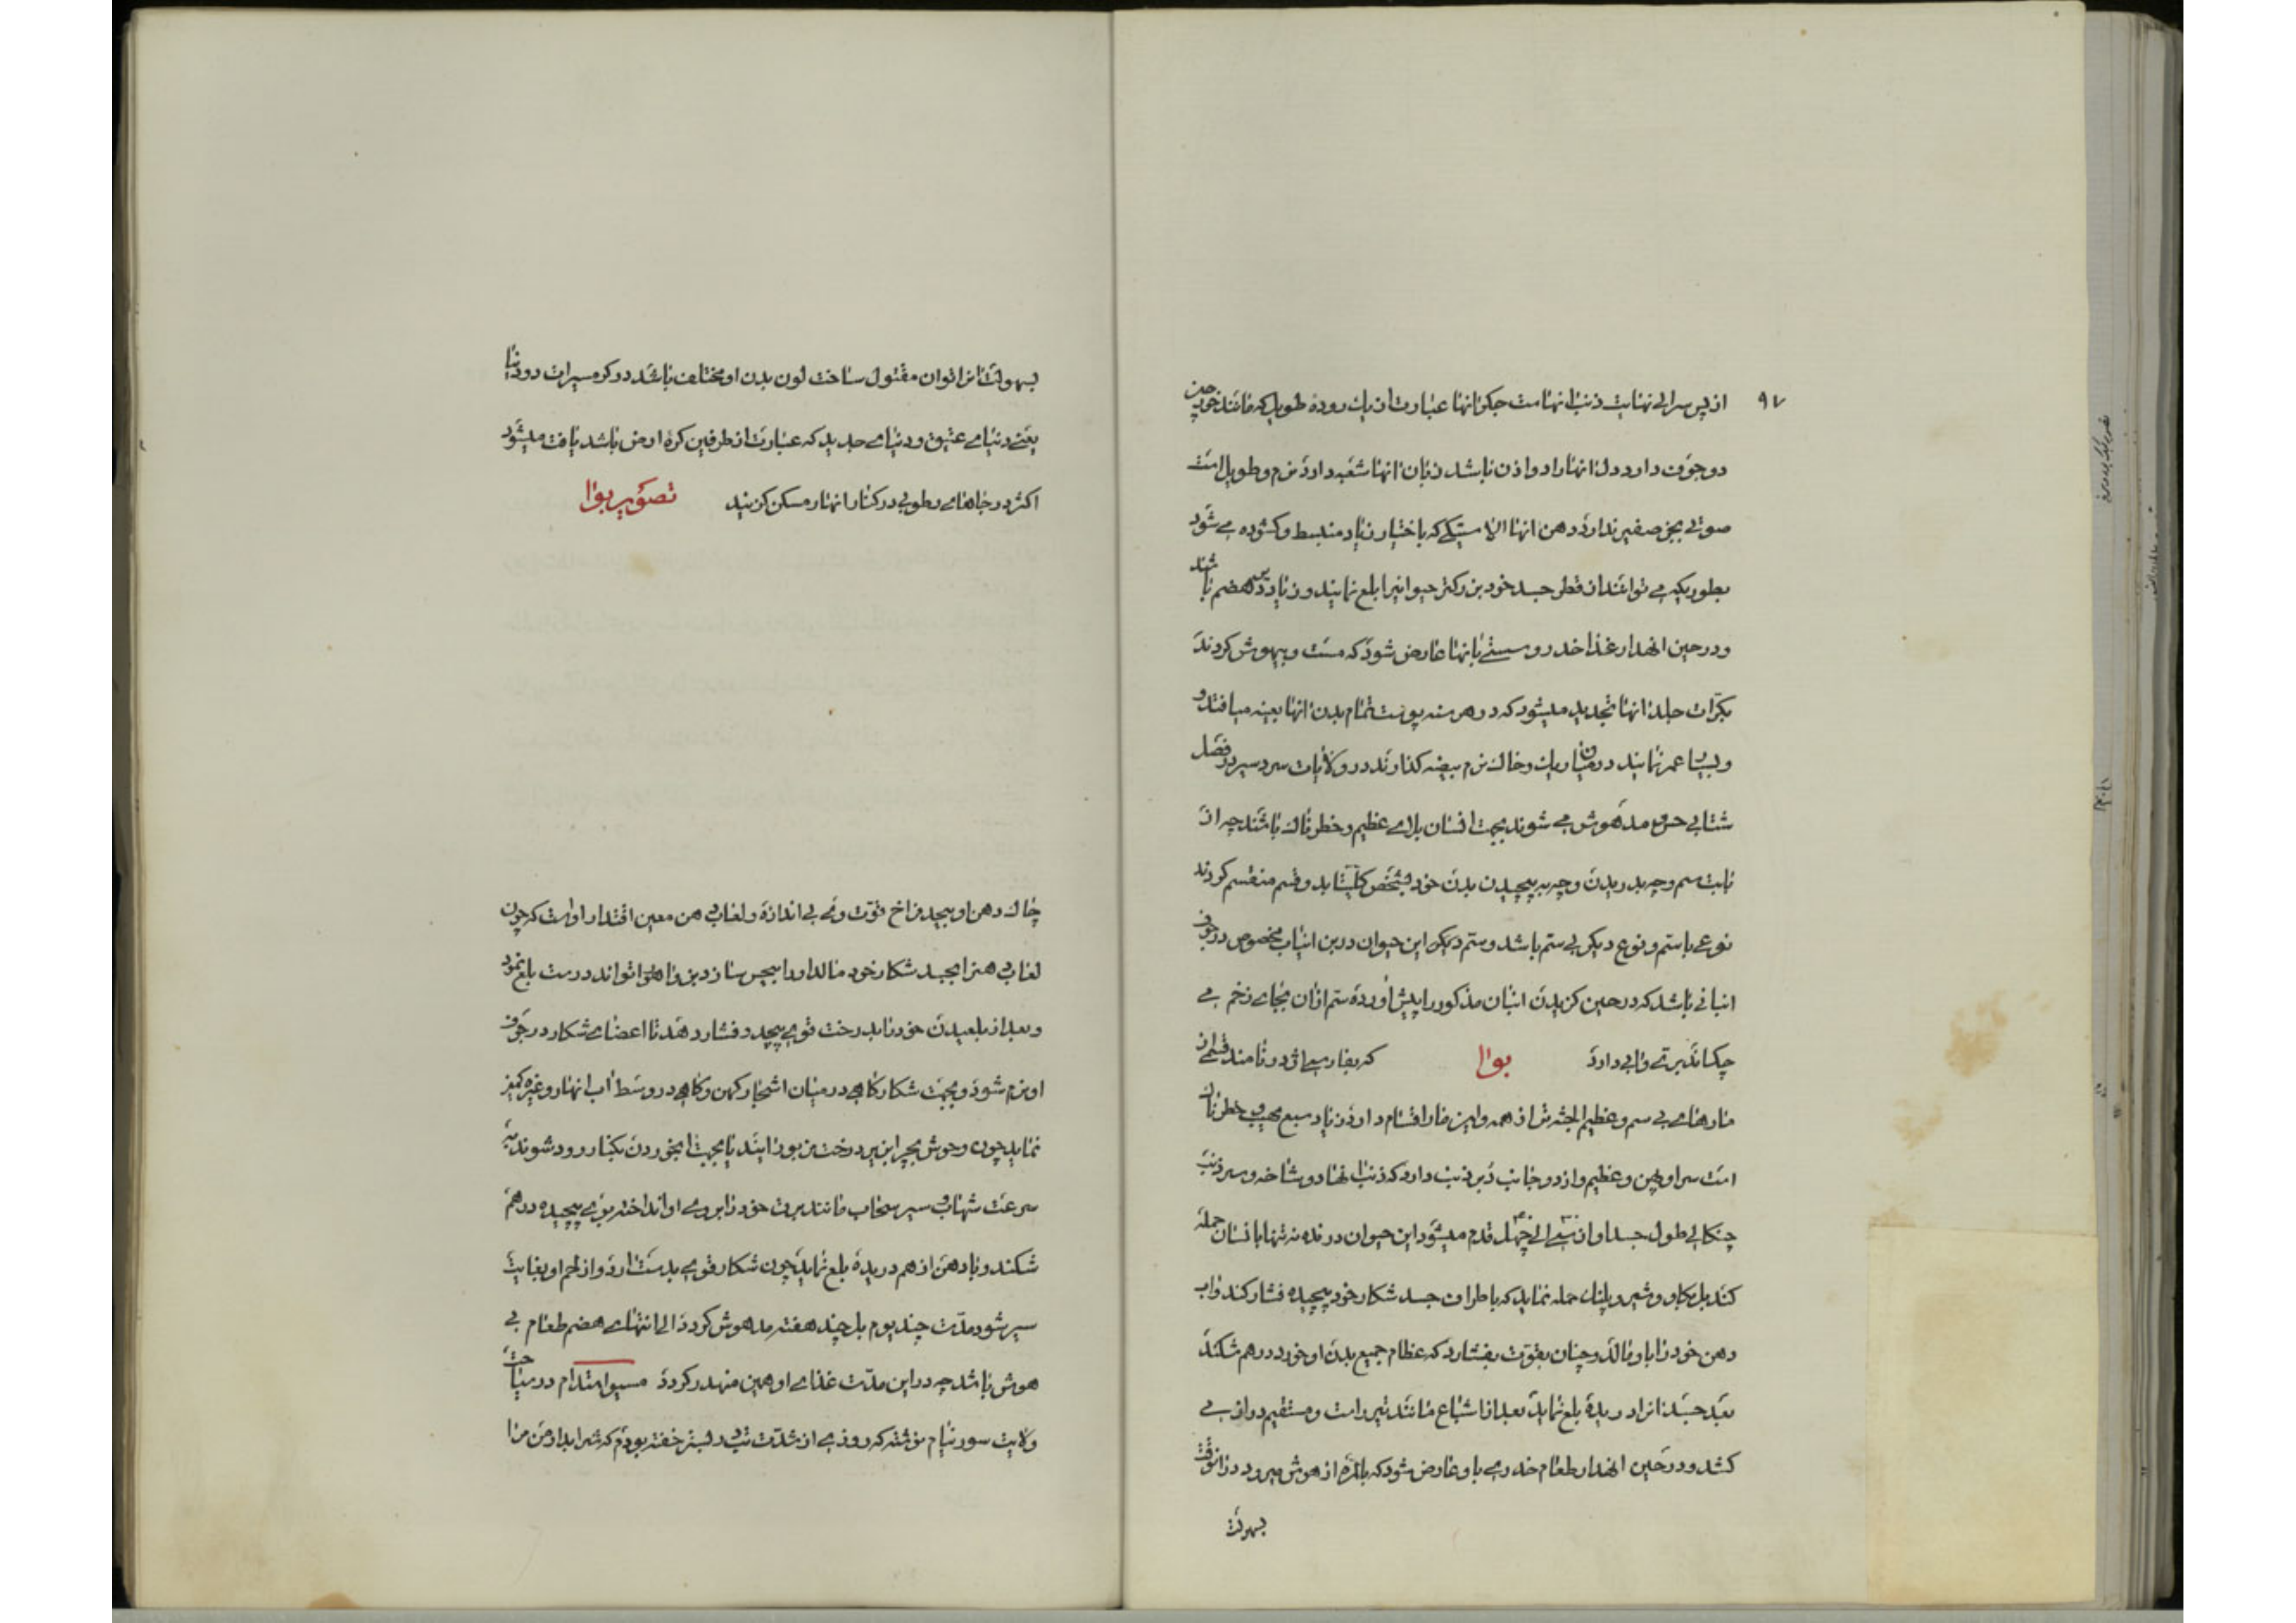 ۹۷
از پس سر الی نهایت ذنب انهاست جگر انها عبارت از یک روده طویل که مانند خون چین
دو جوف دارد دل انها را دو اذن باشد زبان انها شعبه دارد نرم و طویل است
صوتی بجز صفیر ندارد دهن انها الاستیکی که باختیار زیاد منبسط و کشوده می شود
بطوریکه می توانند از قطر جسد خود بزرکتر حیوانیرا بلع نمایند و زیاد هضم باشند
و در حین انهدار غذا خدر و سستی بانها عارض شود که مست و بیهوش کردند
بکرّات جلد انها تجدید میشود که در هر سنه پوست تمام بدن انها بعینه میافتد و
و بسیا عمر نمایند در میان ریک و خاک نرم بیضه کذارند در ولایات سرد سیر در فصل
شتا بی حس و مدهوش می شوند بجهت انسان بلای عظیم و خطرناک باشند چه از
بابت سم و چه بدریدن و چه به پیچیدن بدن خود بشخص کلیتا بدو قسم منقسم کردند
نوعی با ستم و نوع دیکر بی ستم باشد و ستم دیکر این حیوان درین انیاب مخصوص در جوف
انیابی باشد که در حین کزیدن انیان مذکور را پیش اورده ستم ازان بجای زخم می
چکاند برتی والی دارد بوا که بفارسی اژدر نامند قسمی از
مارهای بی سم و عظیم الجثه تر از همه و این مار اقسام دارد زیاد سبع مهیب و خطرناک
است سر او پهن و عظیم و از دو جانب ذیر ذنب دارد که ذنب انها دو شاخه و سر ذنب
چنکالی طول جسد او از سی الی چهل قدم میشود این حیوان درنده نه تنها بانسان حمله
کند بل بکاو و شیر و پلنک حمله نماید که باطراف جسد شکار خود پیچیده فشار کند و اب
دهن خود را باو مالد و چنان بقوّت بفشارد که عظام جمیع بدن او خورد درهم شکند
بعد جسد انرا دریده بلع نماید بعد از اشباع مانند تیر راست و مستقیم دراز می
کشد و در حین انهدار طعام خدری باو عارض شود که بالمرّه از هوش میرود در انوقت
بسهولت
بسهولت انرا توان مقتول ساخت لون بدن او مختلف باشد در کرمسیرات دو دنیا
یعنی دنیای عتیق و دنیای جدید که عبارت از طرفین کره ارض باشد یافت میشود
اکثر در جاهای رطوبی در کنار انهار مسکن کزینند تصویر بوا
چاک دهن او بیحد فراخ قوّت وی بی اندازه و لغاب دهن معین اقتدار اوست که چون
لغاب دهنرا بجسد شکار خود مالد او را بیحس سازد بزودی اهوا تواند درست بلع نمود
و بعد از بلعیدن خود را بدرخت قوی پیچد و فشار دهد تا اعضای شکار در جوف
او نرم شود و بجهت شکار کاهی در میان اشجار کهن و کاهی در وسط اب انهار و غیره کمین
نماید چون وحوش بچرا بزیر درخت مزبور ایند یا بجهت ابخوردن بکنار رود شوند به
سرعت شهاب و سیر سحاب مانند برق خود را بروی او انداخته بوی پیچیده درهم
شکند و با دهن از هم دریده بلع نماید چون شکار قوی بدست ارد و از لحم او بغایت
سیر شود مدّت چند یوم بل چند هفته مدهوش کردد الی انتهای هضم طعام بی
هوش باشد چه در این مدّت غذای او همین منهدر کردد مسیو استدام در سیاحت
ولایت سورینام نوشته که روزی از شدّت تب در بستر خفته بودم که شیرابدار من مرا